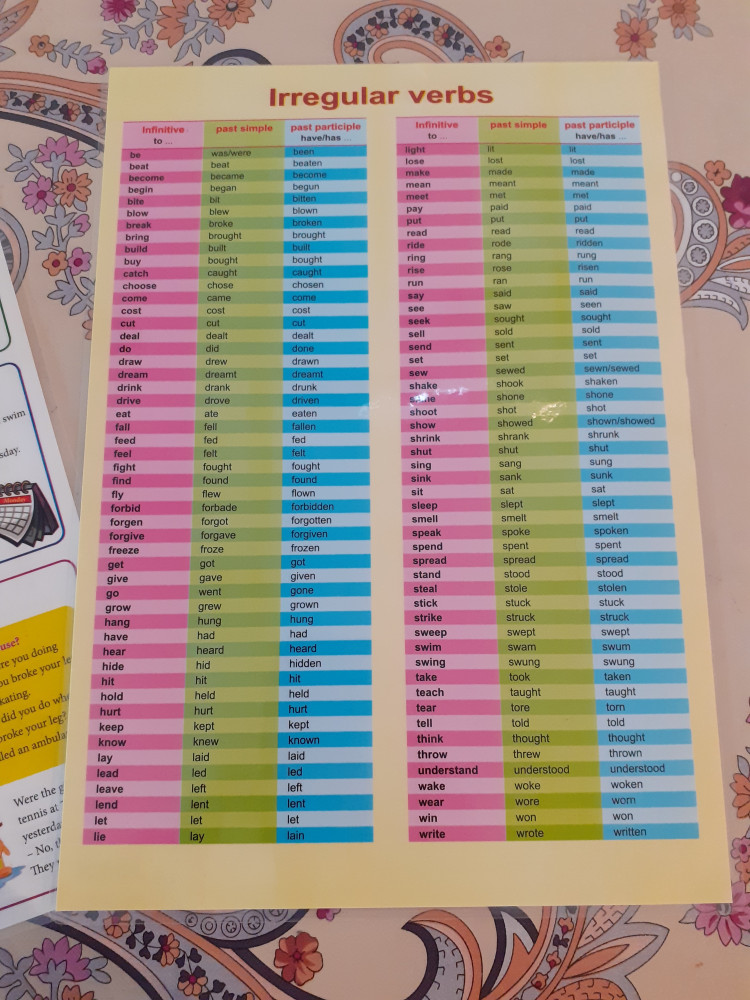 Irregular verbs
Infinitive past simple past participle
to ... have/has ...
be was/were been
beat beat beaten
become became become
begin began begun
bite bit bitten
blow blew blown
break broke broken
bring brought brought
build built built
buy bought bought
catch caught caught
choose chose chosen
come came come
cost cost cost
cut cut cut
deal dealt dealt
do did done
draw drew drawn
dream dreamt dreamt
drink drank drunk
drive drove driven
eat ate eaten
fall fell fallen
feed fed fed
feel felt felt
fight fought fought
find found found
fly flew flown
forbid forbade forbidden
forgen forgot forgotten
forgive forgave forgiven
freeze froze frozen
get got got
give gave given
go went gone
grow grew grown
hang hung hung
have had had
hear heard heard
hide hid hidden
hit hit hit
hold held held
hurt hurt hurt
keep kept kept
know knew known
lay laid laid
lead led led
leave left left
lend lent lent
let let let
lie lay lain
Infinitive past simple past participle
to ... have/has ...
light lit lit
lose lost lost
make made made
mean meant meant
meet met met
pay paid paid
put put put
read read read
ride rode ridden
ring rang rung
rise rose risen
run ran run
say said said
see saw seen
seek sought sought
sell sold sold
send sent sent
set set set
sew sewed sewn/sewed
shake shook shaken
shone shone
shoot shot shot
show showed shown/showed
shrink shrank shrunk
shut shut shut
sing sang sung
sink sank sunk
sit sat sat
sleep slept slept
smell smelt smelt
speak spoke spoken
spend spent spent
spread spread spread
stand stood stood
steal stole stolen
stick stuck stuck
strike struck struck
sweep swept swept
swim swam swum
swing swung swung
take took taken
teach taught taught
tear tore torn
tell told told
think thought thought
throw threw thrown
understand understood understood
wake woke woken
wear wore worn
win won won
write wrote written
swim
sday.
Monday
use?
re you doing
ou broke your le
kating.
did you do whe
broke your leg?
lled an ambula
Were the g
tennis at
yesterda
– No, t
They